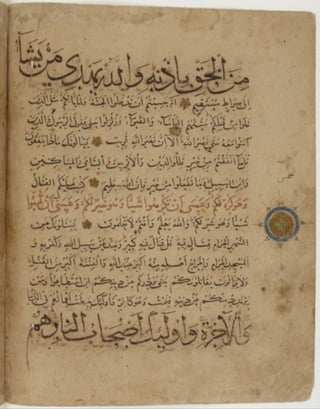 مِنَ الْحَقِّ بِإِذْنِهِ وَاللَّهُ يَهْدِي مَنْ يَشَاءُ
إلى صراط مستقيم أم حسبتم أن تدخلوا الجنة ولما يأتكم مثل الذين
خلوا من قبلكم مستهم البأساء والضراء وزلزلوا حتى يقول الرسول والذين
آمنوا معه متى نصر الله ألا إن نصر الله قريب يسألونك ماذا ينفقون
قل ما أنفقتم من خير فللوالدين والأقربين واليتامى والمساكين
وابن السبيل وما تفعلوا من خير فإن الله به عليم كتب عليكم القتال
وهو كره لكم وعسى أن تكرهوا شيئا وهو خير لكم وعسى أن تحبوا
شيئا وهو شر لكم والله يعلم وأنتم لا تعلمون يسألونك عن
الشهر الحرام قتال فيه قل قتال فيه كبير وصد عن سبيل الله وكفر به و
المسجد الحرام وإخراج أهله منه أكبر عند الله والفتنة أكبر من القتل
ولا يزالون يقاتلونكم حتى يردوكم عن دينكم إن استطاعوا ومن
يرتدد منكم عن دينه فيمت وهو كافر فأولئك حبطت أعمالهم في الدنيا
والآخرة وأولئك أصحاب النار هم